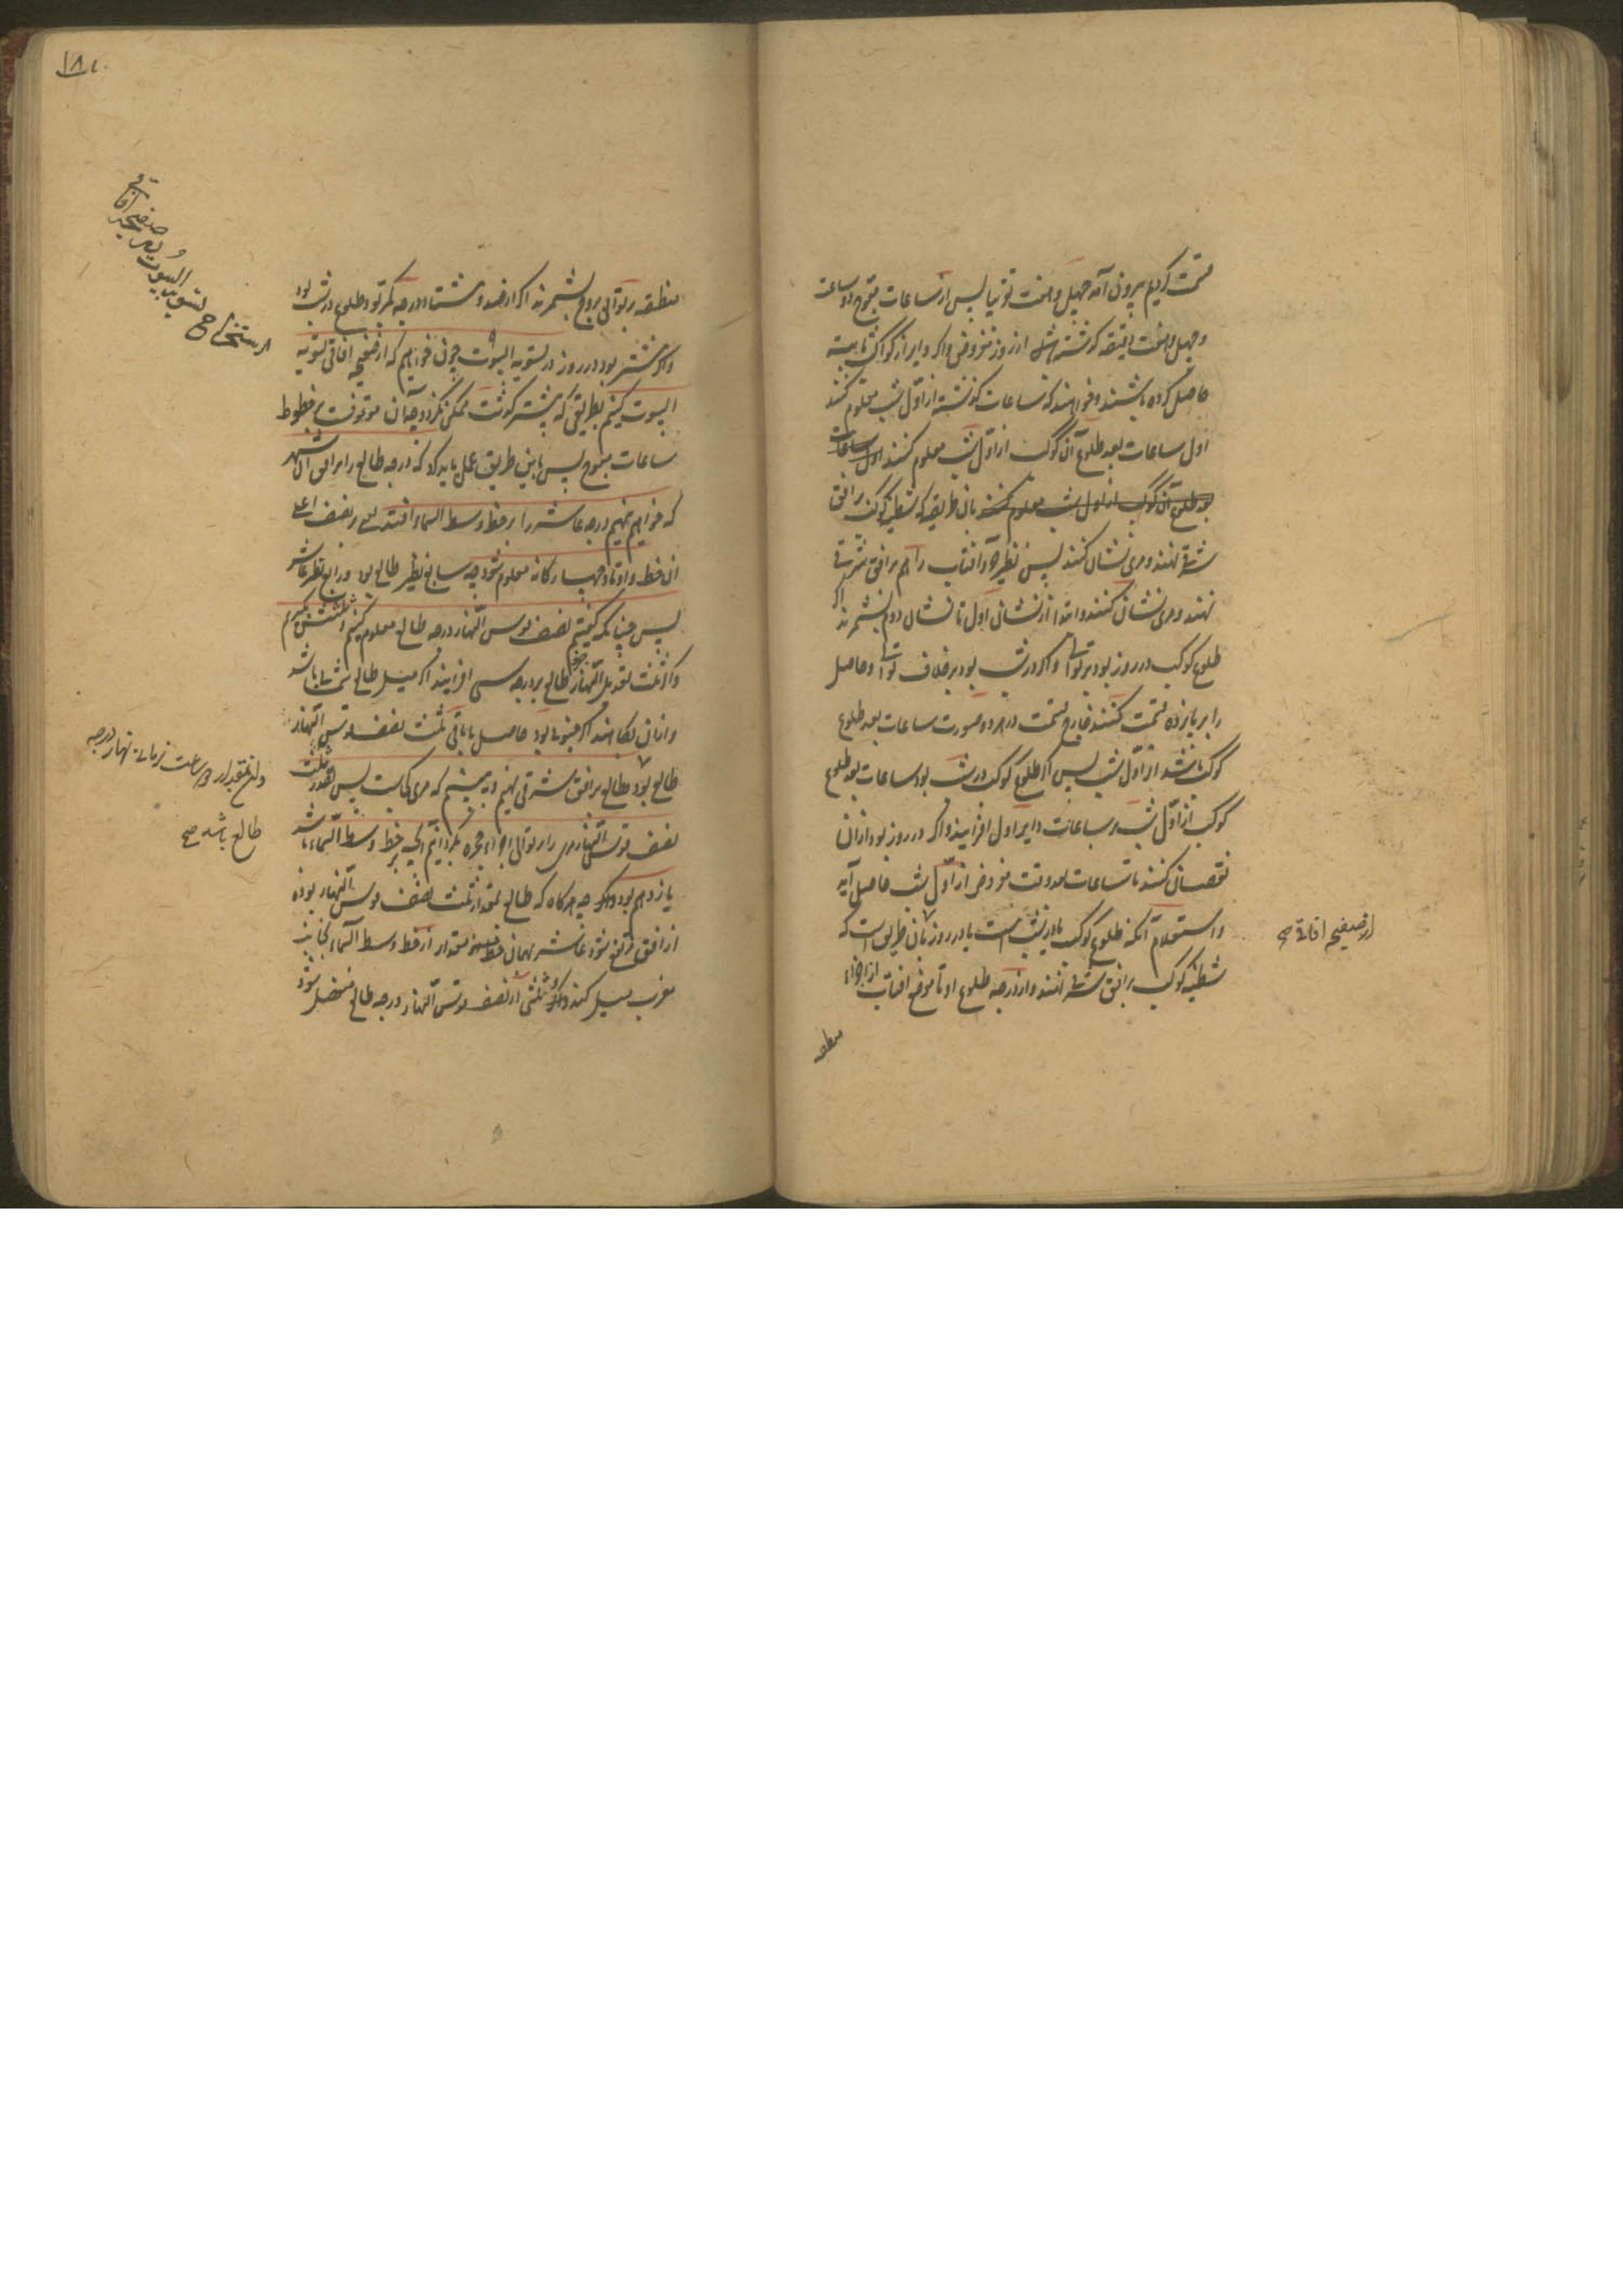 قسمت کردیم بیرون آمد چهل و هفت تقریبا پس از ساعات معوج دو ساعت
و چهل و هفت دقیقه گذشته باشد از روز مفروض و اگر دایر از کواکب ثابته
حاصل کرده باشند و خواهند که ساعات گذشته از اول شب معلوم کنند
اول ساعات بعد طلوع آن کوکب از اول شب معلوم کنند اول ساعات
بعد طلوع آن کوکب از اول شب معلوم کنند بان طریقه که شظیه کوکب بر افق
شرقی نهند و مری نشان کنند پس نظیر جزو آفتاب را هم بر افق شرقی
نهند و مری نشان کنند و ابتدا از نشان اول تا نشان دوم بشمرند اگر
طلوع کوکب در روز بود بر توالی و اگر در شب بود بر خلاف توالی و حاصل
را بر پانزده قسمت کنند خارج قسمت در هر دو صورت ساعات بعد طلوع
کوکب باشد از اول شب پس اگر طلوع کوکب در شب بود ساعات بعد طلوع
کوکب از اول شب بر ساعات دایر اول افزایند و اگر در روز بود از ان
نقصان کنند تا ساعات بعد وقت مفروض از اول شب حاصل آید
و استعلام آنکه طلوع کوکب یا در شب است یا در روز بان طریق است که
شظیه کوکب بر افق شرقی نهند و از درجه طلوع او تا موضع آفتاب از اجزاء
منطقه
از صفیحه افاقی صح
۱۸۰
استخراج تسویه البیوت بر صفیحه آفاقی
منطقه بر توالی بروج بشمرند اگر از صد و هشتاد درجه کمتر بود طلوع در شب بود
و اگر بیشتر بود در روز در تسویه البیوت چون خواهیم که از صفیحه افاقی تسویه
البیوت کنیم بطریقی که پیشتر گذشت ممکن نگردد چه آن موقوفست بر خطوط
ساعات معوج پس باین طریق عمل باید کرد که درجه طالع را بر افق آن شهر
که خواهیم نهیم درجه عاشر را بر خط وسط السما افتد بر نصف اعلی
ان خط و اوتاد چهارکانه معلوم شود چه سابع نظیر طالع بود و رابع نظیر عاشر
پس چنانکه گفتیم نصف قوس النهار درجه طالع معلوم کنیم و ثلثش بگیریم
و اگر ثلث تعدیل النهار جزو طالع بر درجه سی افزایند اگر میل طالع شمالی باشد
و از ان بکاهند اگر جنوبی بود حاصل یا باقی ثلث نصف قوس النهار
طالع بود و طالع بر افق مشرقی نهیم و به بینیم که مری کجاست پس بقدر ثلث
نصف قوس النهار مری را بر توالی اجزاء حجره بگردانیم آنچه بر خط وسط السماء باشد
یازدهم بود چه هرگاه که طالع بمقدار ثلث نصف قوس النهار بوده
از افق مرتفع شود عاشر بهمان مقدار از خط وسط السماء بجانب
مغرب میل کند و ثلثی از نصف قوس النهار درجه طالع منفصل شود
و آن بمقدار دو ساعت زمانی نهار درجه
طالع باشد صح